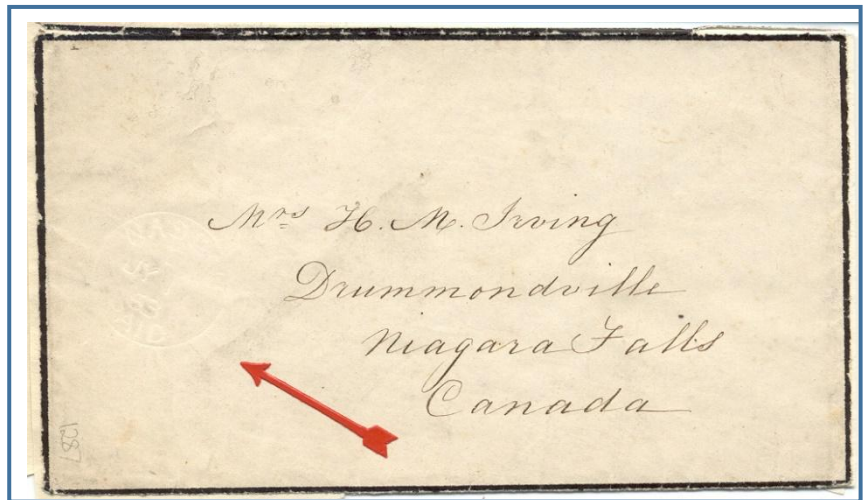 Mrs H. M. Irving
Drummondville
Niagara Falls
Canada